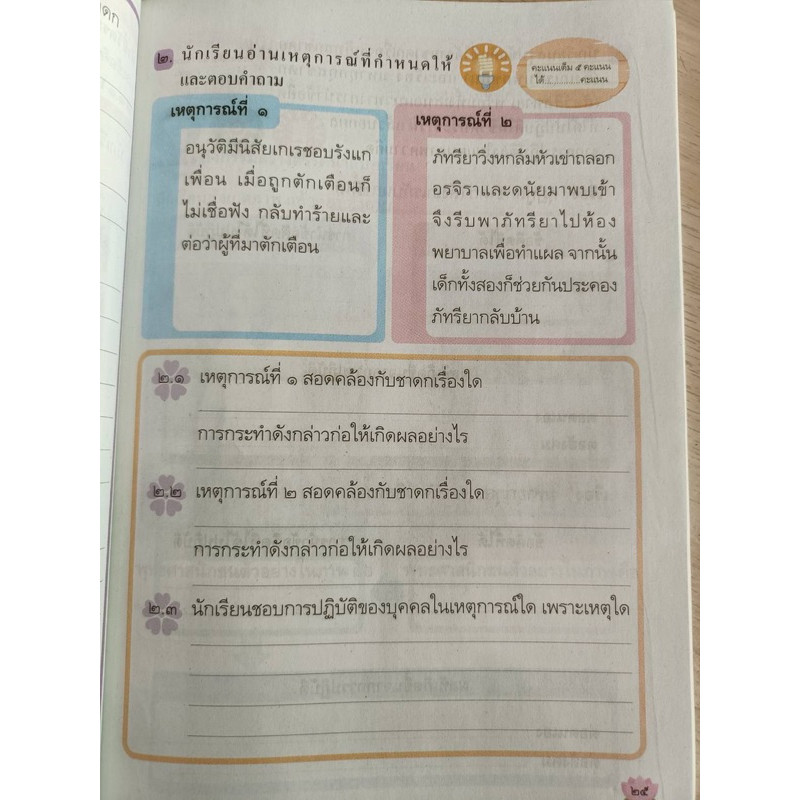 ๒. นักเรียนอ่านเหตุการณ์ที่กำหนดให้
และตอบคำถาม
คะแนนเต็ม ๕ คะแนน
ได้............คะแนน
เหตุการณ์ที่ ๑
อนุวัติมีนิสัยเกเรชอบรังแก
เพื่อน เมื่อถูกตักเตือนก็
ไม่เชื่อฟัง กลับทำร้ายและ
ต่อว่าผู้ที่มาตักเตือน
เหตุการณ์ที่ ๒
ภัทรียาวิ่งหกล้มหัวเข่าถลอก
อรจิราและดนัยมาพบเข้า
จึงรีบพาภัทรียาไปห้อง
พยาบาลเพื่อทำแผล จากนั้น
เด็กทั้งสองก็ช่วยกันประคอง
ภัทรียากลับบ้าน
๒.๑ เหตุการณ์ที่ ๑ สอดคล้องกับชาดกเรื่องใด
การกระทำดังกล่าวก่อให้เกิดผลอย่างไร
๒.๒ เหตุการณ์ที่ ๒ สอดคล้องกับชาดกเรื่องใด
การกระทำดังกล่าวก่อให้เกิดผลอย่างไร
๒.๓ นักเรียนชอบการปฏิบัติของบุคคลในเหตุการณ์ใด เพราะเหตุใด
๒๕